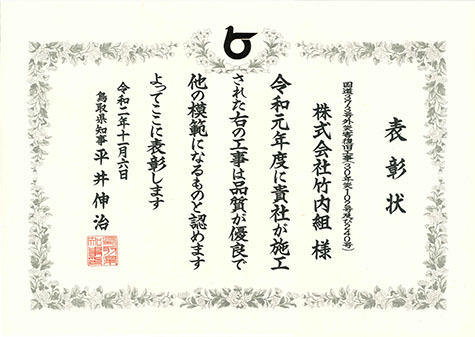 表彰状
国道373号外災害復旧工事(30年災102号及び540号)
株式会社竹内組 様
令和元年度に貴社が施工
された右の工事は品質が優良で
他の模範になるものと認めます
よってここに表彰します
令和二年十一月六日
鳥取県知事 平井伸治